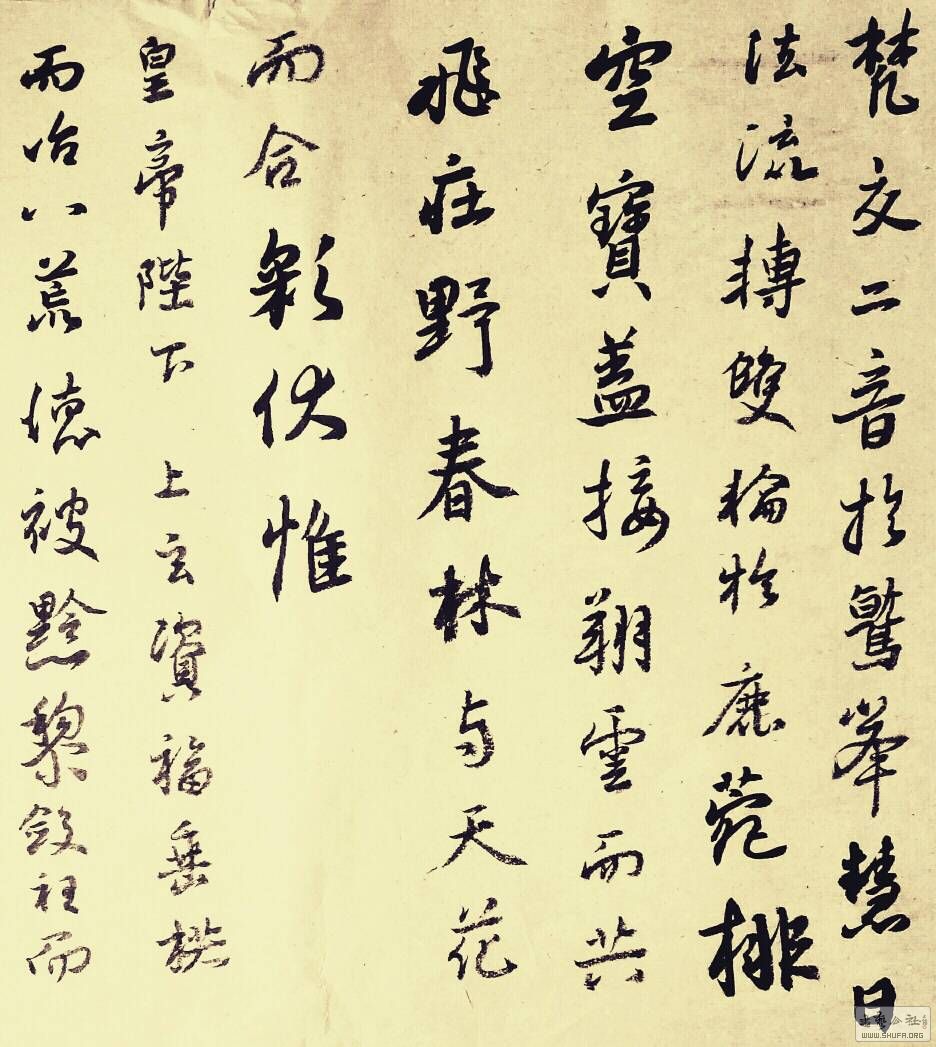 梵交二音於鷲峯慧日
法流轉雙輪於鹿菀排
空寶蓋接翔雲而共
飛莊野春林与天花
而合彩伏惟
皇帝陛下上玄資福垂拱
而治八荒德被黔黎斂衽而
WWW.SHUFA.ORG